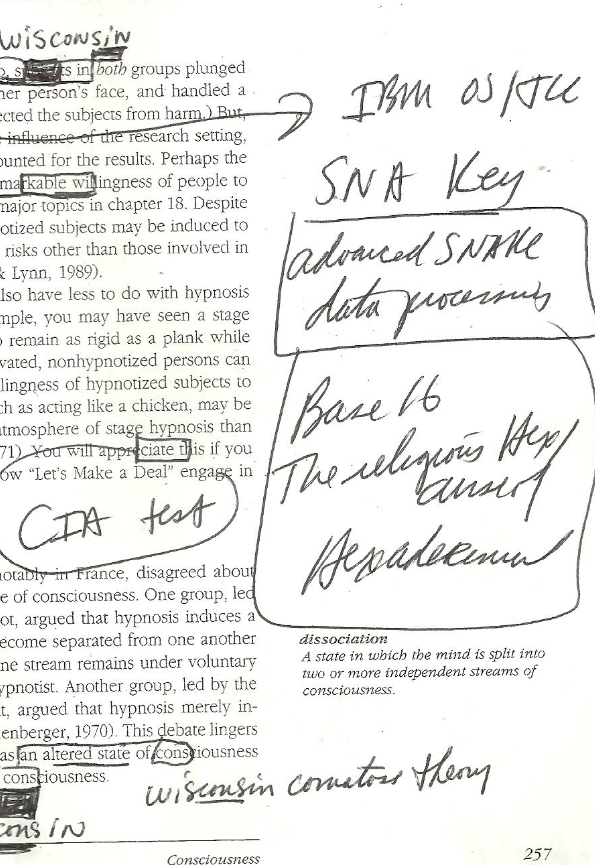 WISCONSIN
in both groups plunged
her person's face, and handled a
ected the subjects from harm.) But,
influence of the research setting,
ounted for the results. Perhaps the
markable willingness of people to
major topics in chapter 18. Despite
otized subjects may be induced to
risks other than those involved in
& Lynn, 1989).
lso have less to do with hypnosis
mple, you may have seen a stage
o remain as rigid as a plank while
vated, nonhypnotized persons can
lingness of hypnotized subjects to
ch as acting like a chicken, may be
atmosphere of stage hypnosis than
71). You will appreciate this if you
ow "Let's Make a Deal" engage in
CIA test
notably in France, disagreed about
e of consciousness. One group, led
ot, argued that hypnosis induces a
ecome separated from one another
ne stream remains under voluntary
ypnotist. Another group, led by the
t, argued that hypnosis merely in-
enberger, 1970). This debate lingers
as an altered state of consciousness
consciousness.
CONSIN
IBM OS/
SNA Key
advanced SNAKE
data processing
Base 16
The religious Hex
Hexadecimal
dissociation
A state in which the mind is split into
two or more independent streams of
consciousness.
wisconsin comatose theory
Consciousness
257